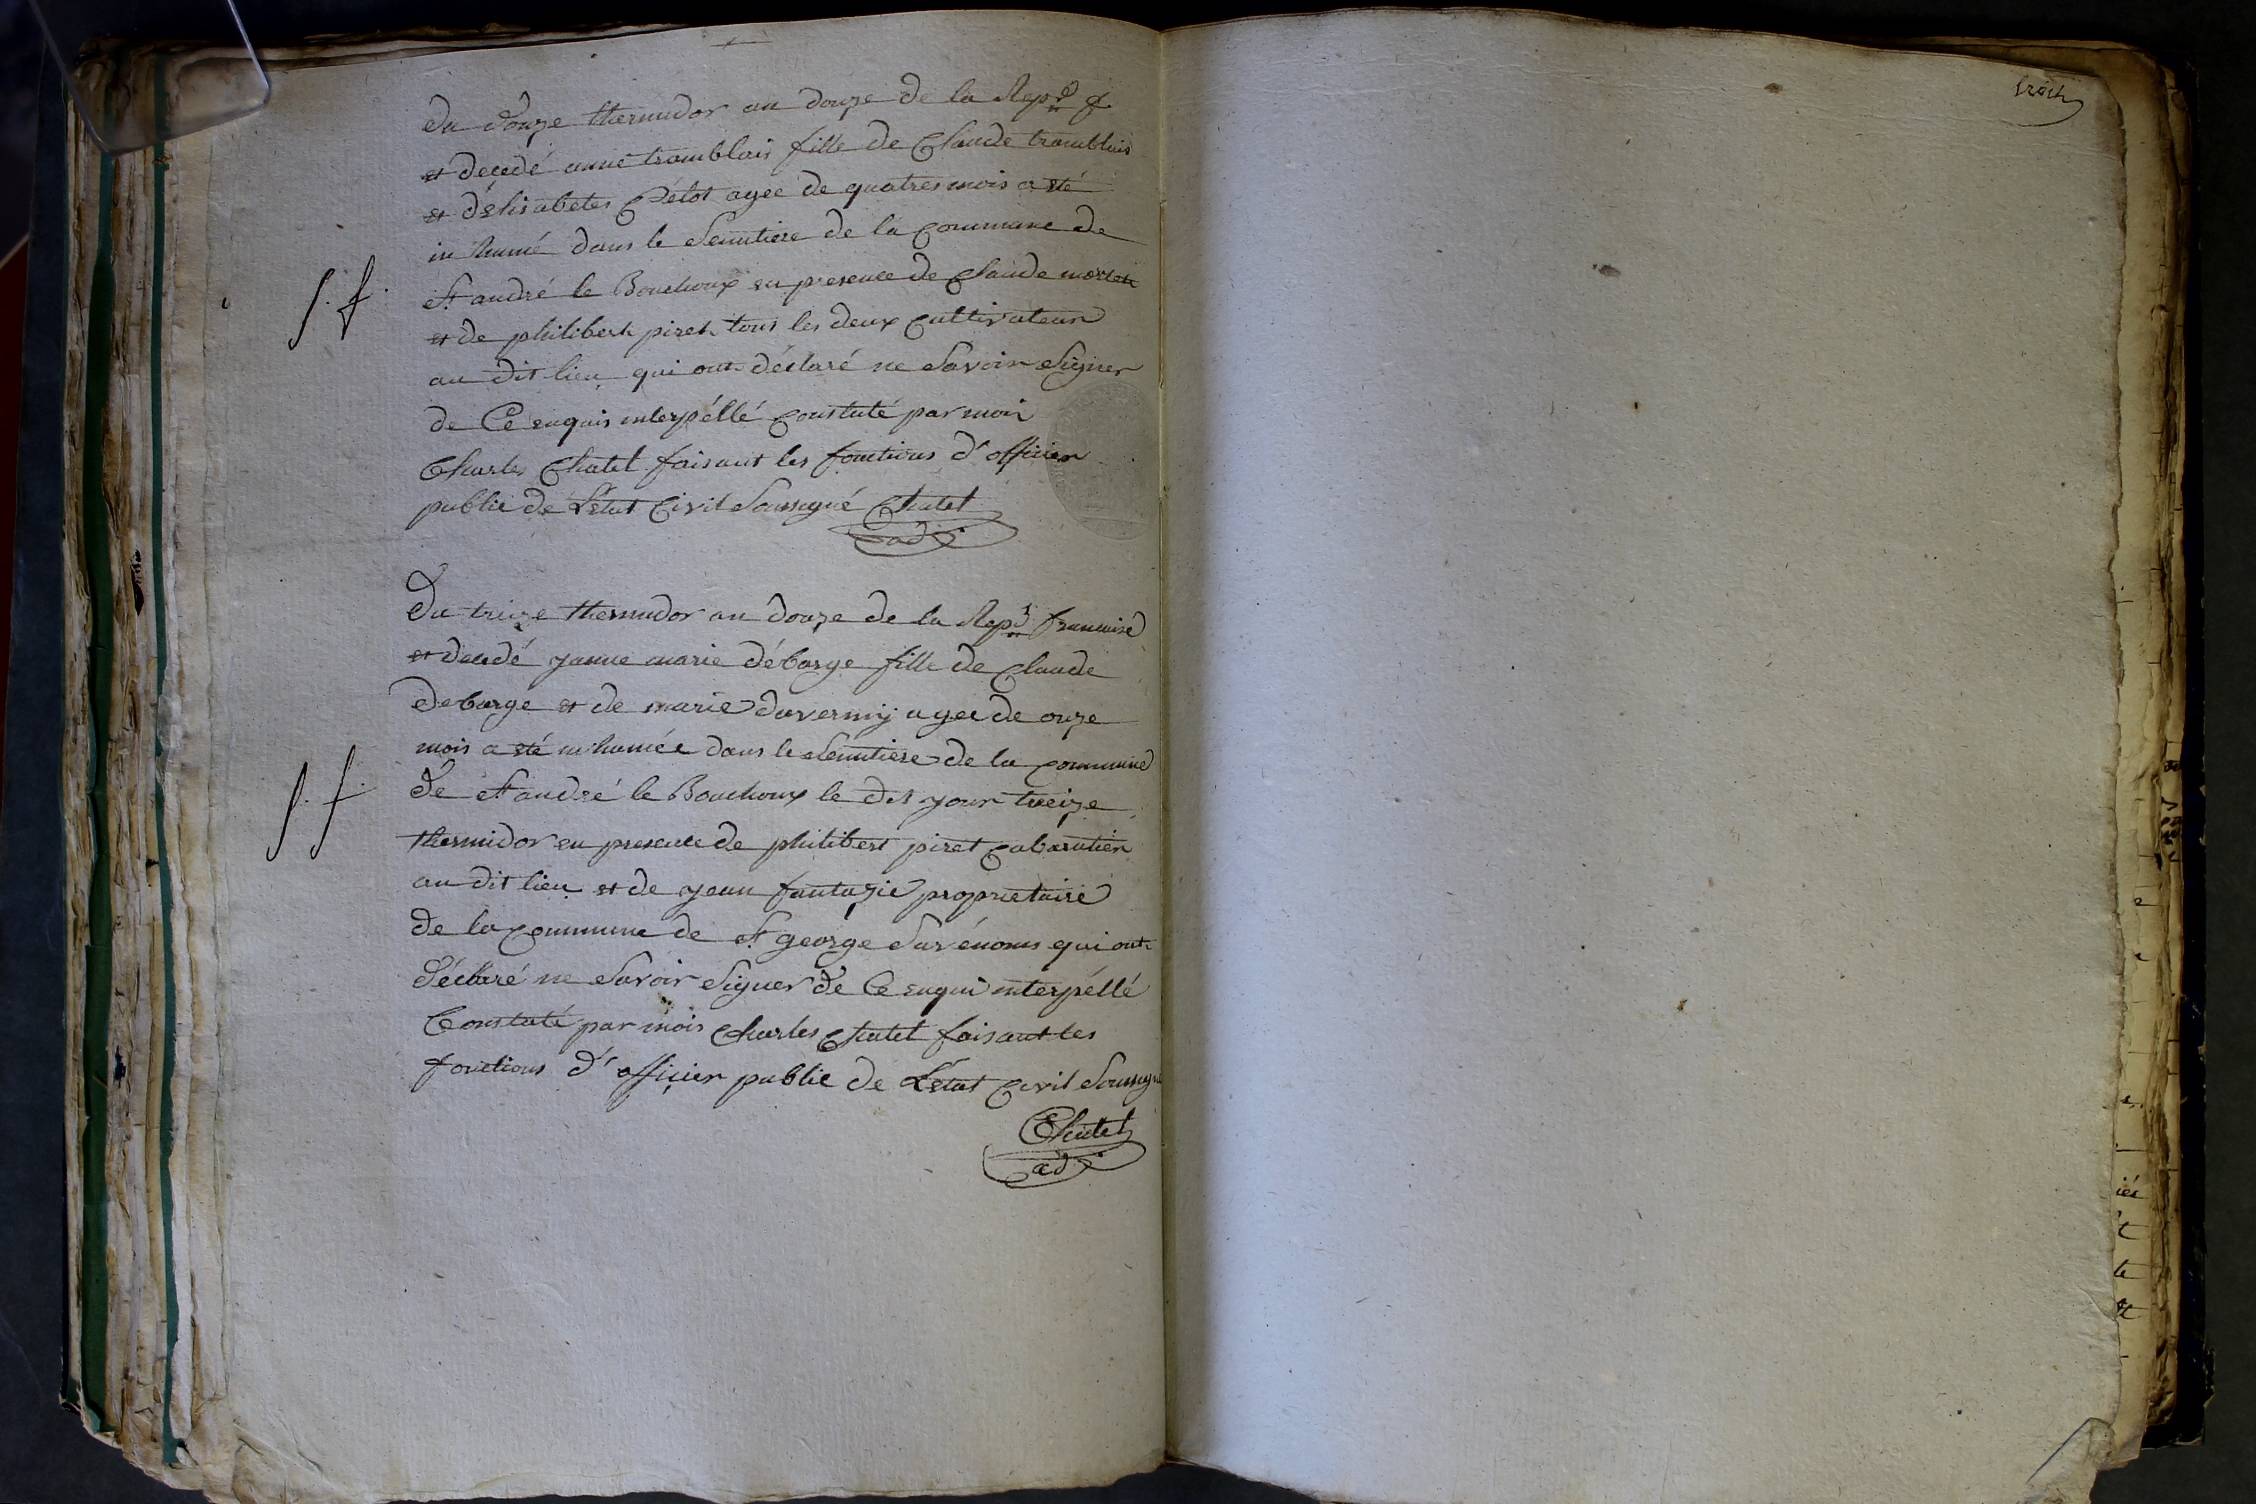 Du douze thermidor an douze de la Rep.e f
et decedé anne tramblais fille de Claude tramblais
et d'Elisabetes Pélot agee de quatres mois a eté
in humé dans le Semitiere de la Commune de
St andré le Bouchoux en presence de Claude
et de philibert piret tous les deux Cultivateur
au dit lieu qui ont déclaré ne Savoir Signer
de Ce enquis interpéllé Constaté par moi
Charles Chatel faisant les fonctions d'officier
public de L'état Civil Soussigné Chatel
adj.
s. f.
Du treize thermidor an douze de la Rep.e francaise
et decedé janne marie débarge fille de Claude
debarge et de marie duverniy agee de onze
mois a eté inhumée dans le Semitiere de la Commune
de St andré le Bouchoux le dit jour treize
thermidor en presence de philibert piret Cabaratier
au dit lieu et de jean fantazie proprietaire
de la Commune de St george Sur énons qui ont
déclaré ne Savoir Signer de Ce enqui interpéllé
Constaté par mois Charles Chatel faisant les
fonctions d'officier public de L'état Civil Soussigné
Chatel
adj.
s. f.